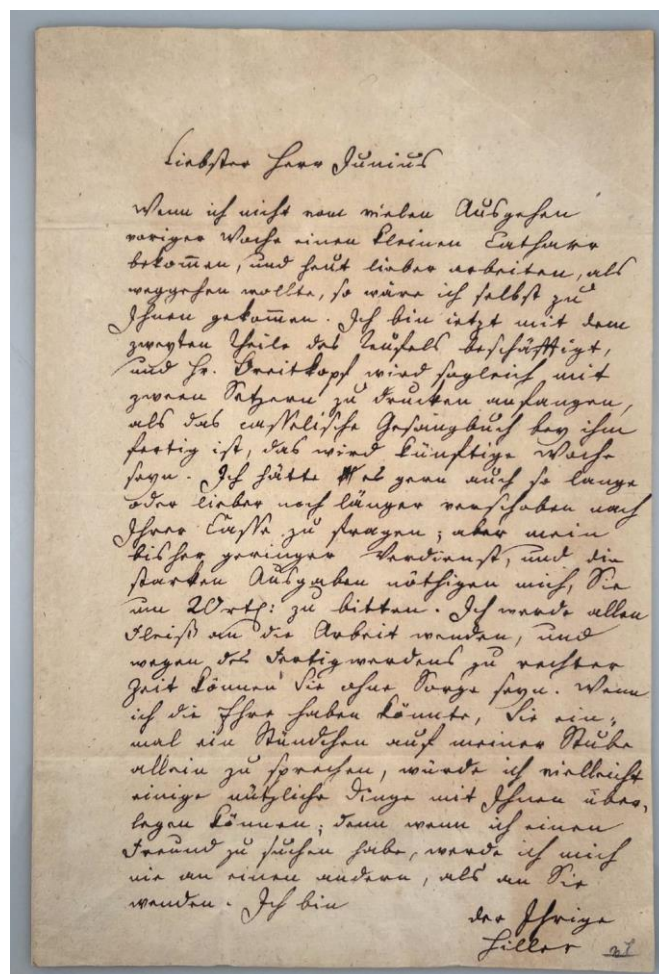 Liebster Herr Junius
Wenn ich nicht vom vielen Ausgehen
voriger Woche einen kleinen Catharr
bekom̅en, und heut lieber arbeiten, als
weggehen wollte, so wäre ich selbst zu
Ihnen gekom̅en. Ich bin ietzt mit dem
zweyten Theile des Teufels beschäfftigt,
und Hr. Breitkopf wird sogleich mit
zween Setzern zu drucken anfangen,
als das casselische Gesangbuch bey ihm
fertig ist, das wird künftige Woche
seyn. Ich hätte es gern auch so lange
oder lieber noch länger verschoben nach
Ihrer Casse zu fragen; aber mein
bisher geringer Verdienst, und die
starken Ausgaben nöthigen mich, Sie
um 20 rth: zu bitten. Ich werde allen
Fleiß an die Arbeit wenden, und
wegen des Fertigwerdens zu rechter
Zeit können Sie ohne Sorge seyn. Wenn
ich die Ehre haben könnte, Sie ein=
mal ein Stündchen auf meiner Stube
allein zu sprechen, würde ich vielleicht
einige nützliche Dinge mit Ihnen über=
legen können; denn wenn ich einen
Freund zu suchen habe, werde ich mich
nie an einen andern, als an Sie
wenden. Ich bin
der Ihrige
Hiller